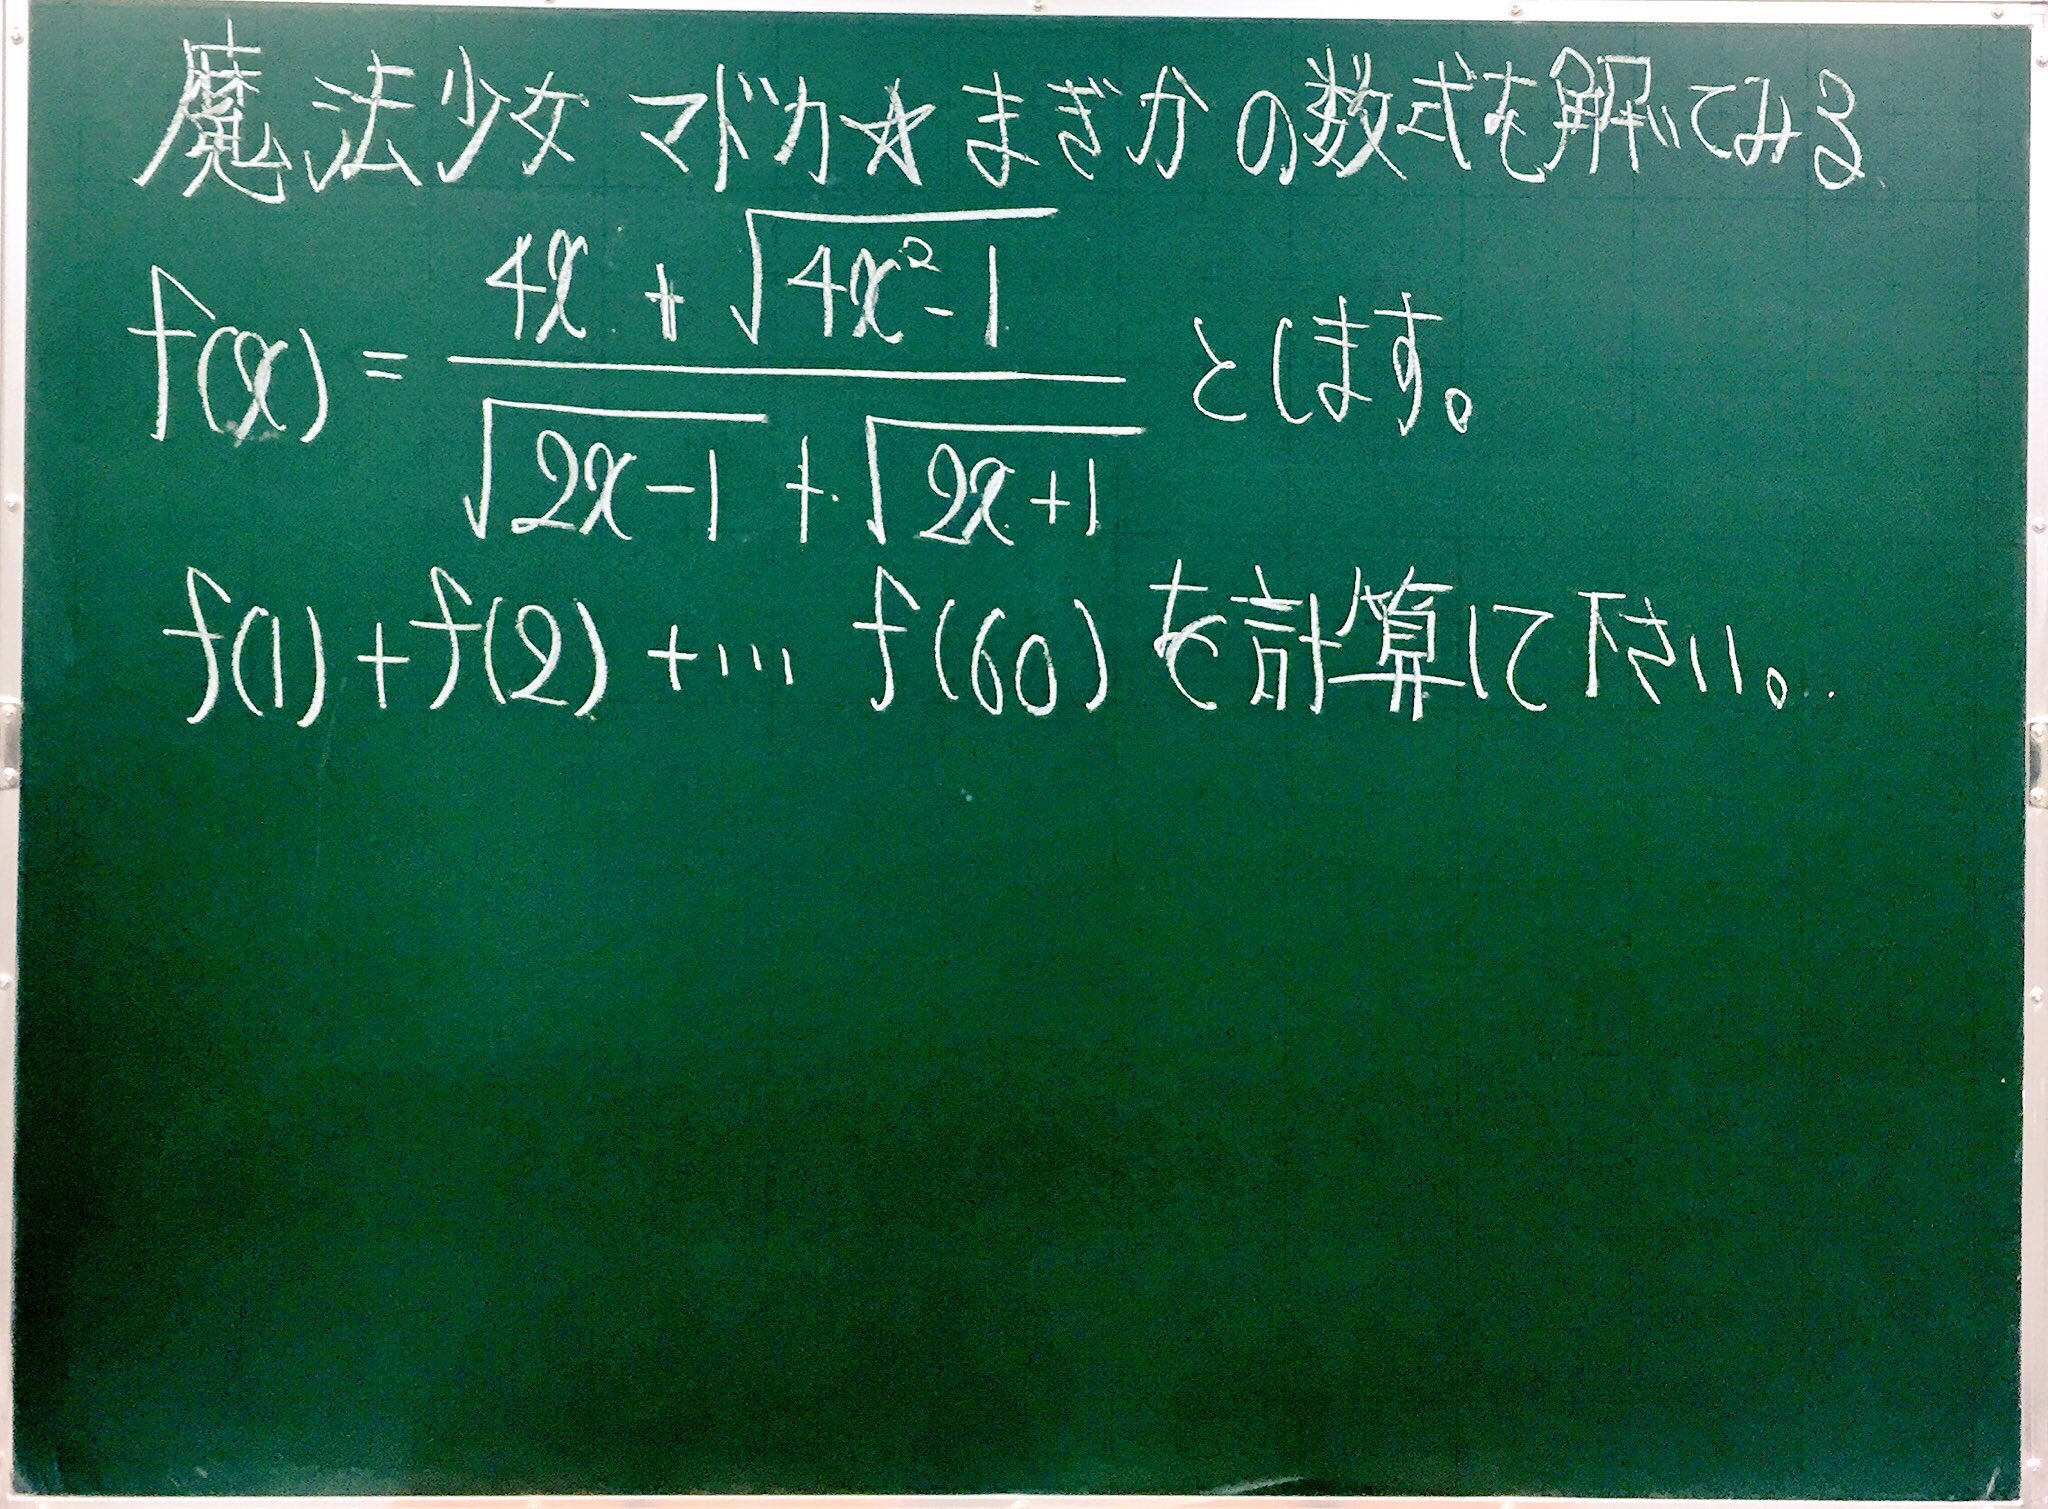 魔法少女マドカ☆まぎかの数式を解いてみる
f(x) = (4x + √(4x²-1)) / (√(2x-1) + √(2x+1)) とします。
f(1)+f(2)+… f(60)を計算して下さい。